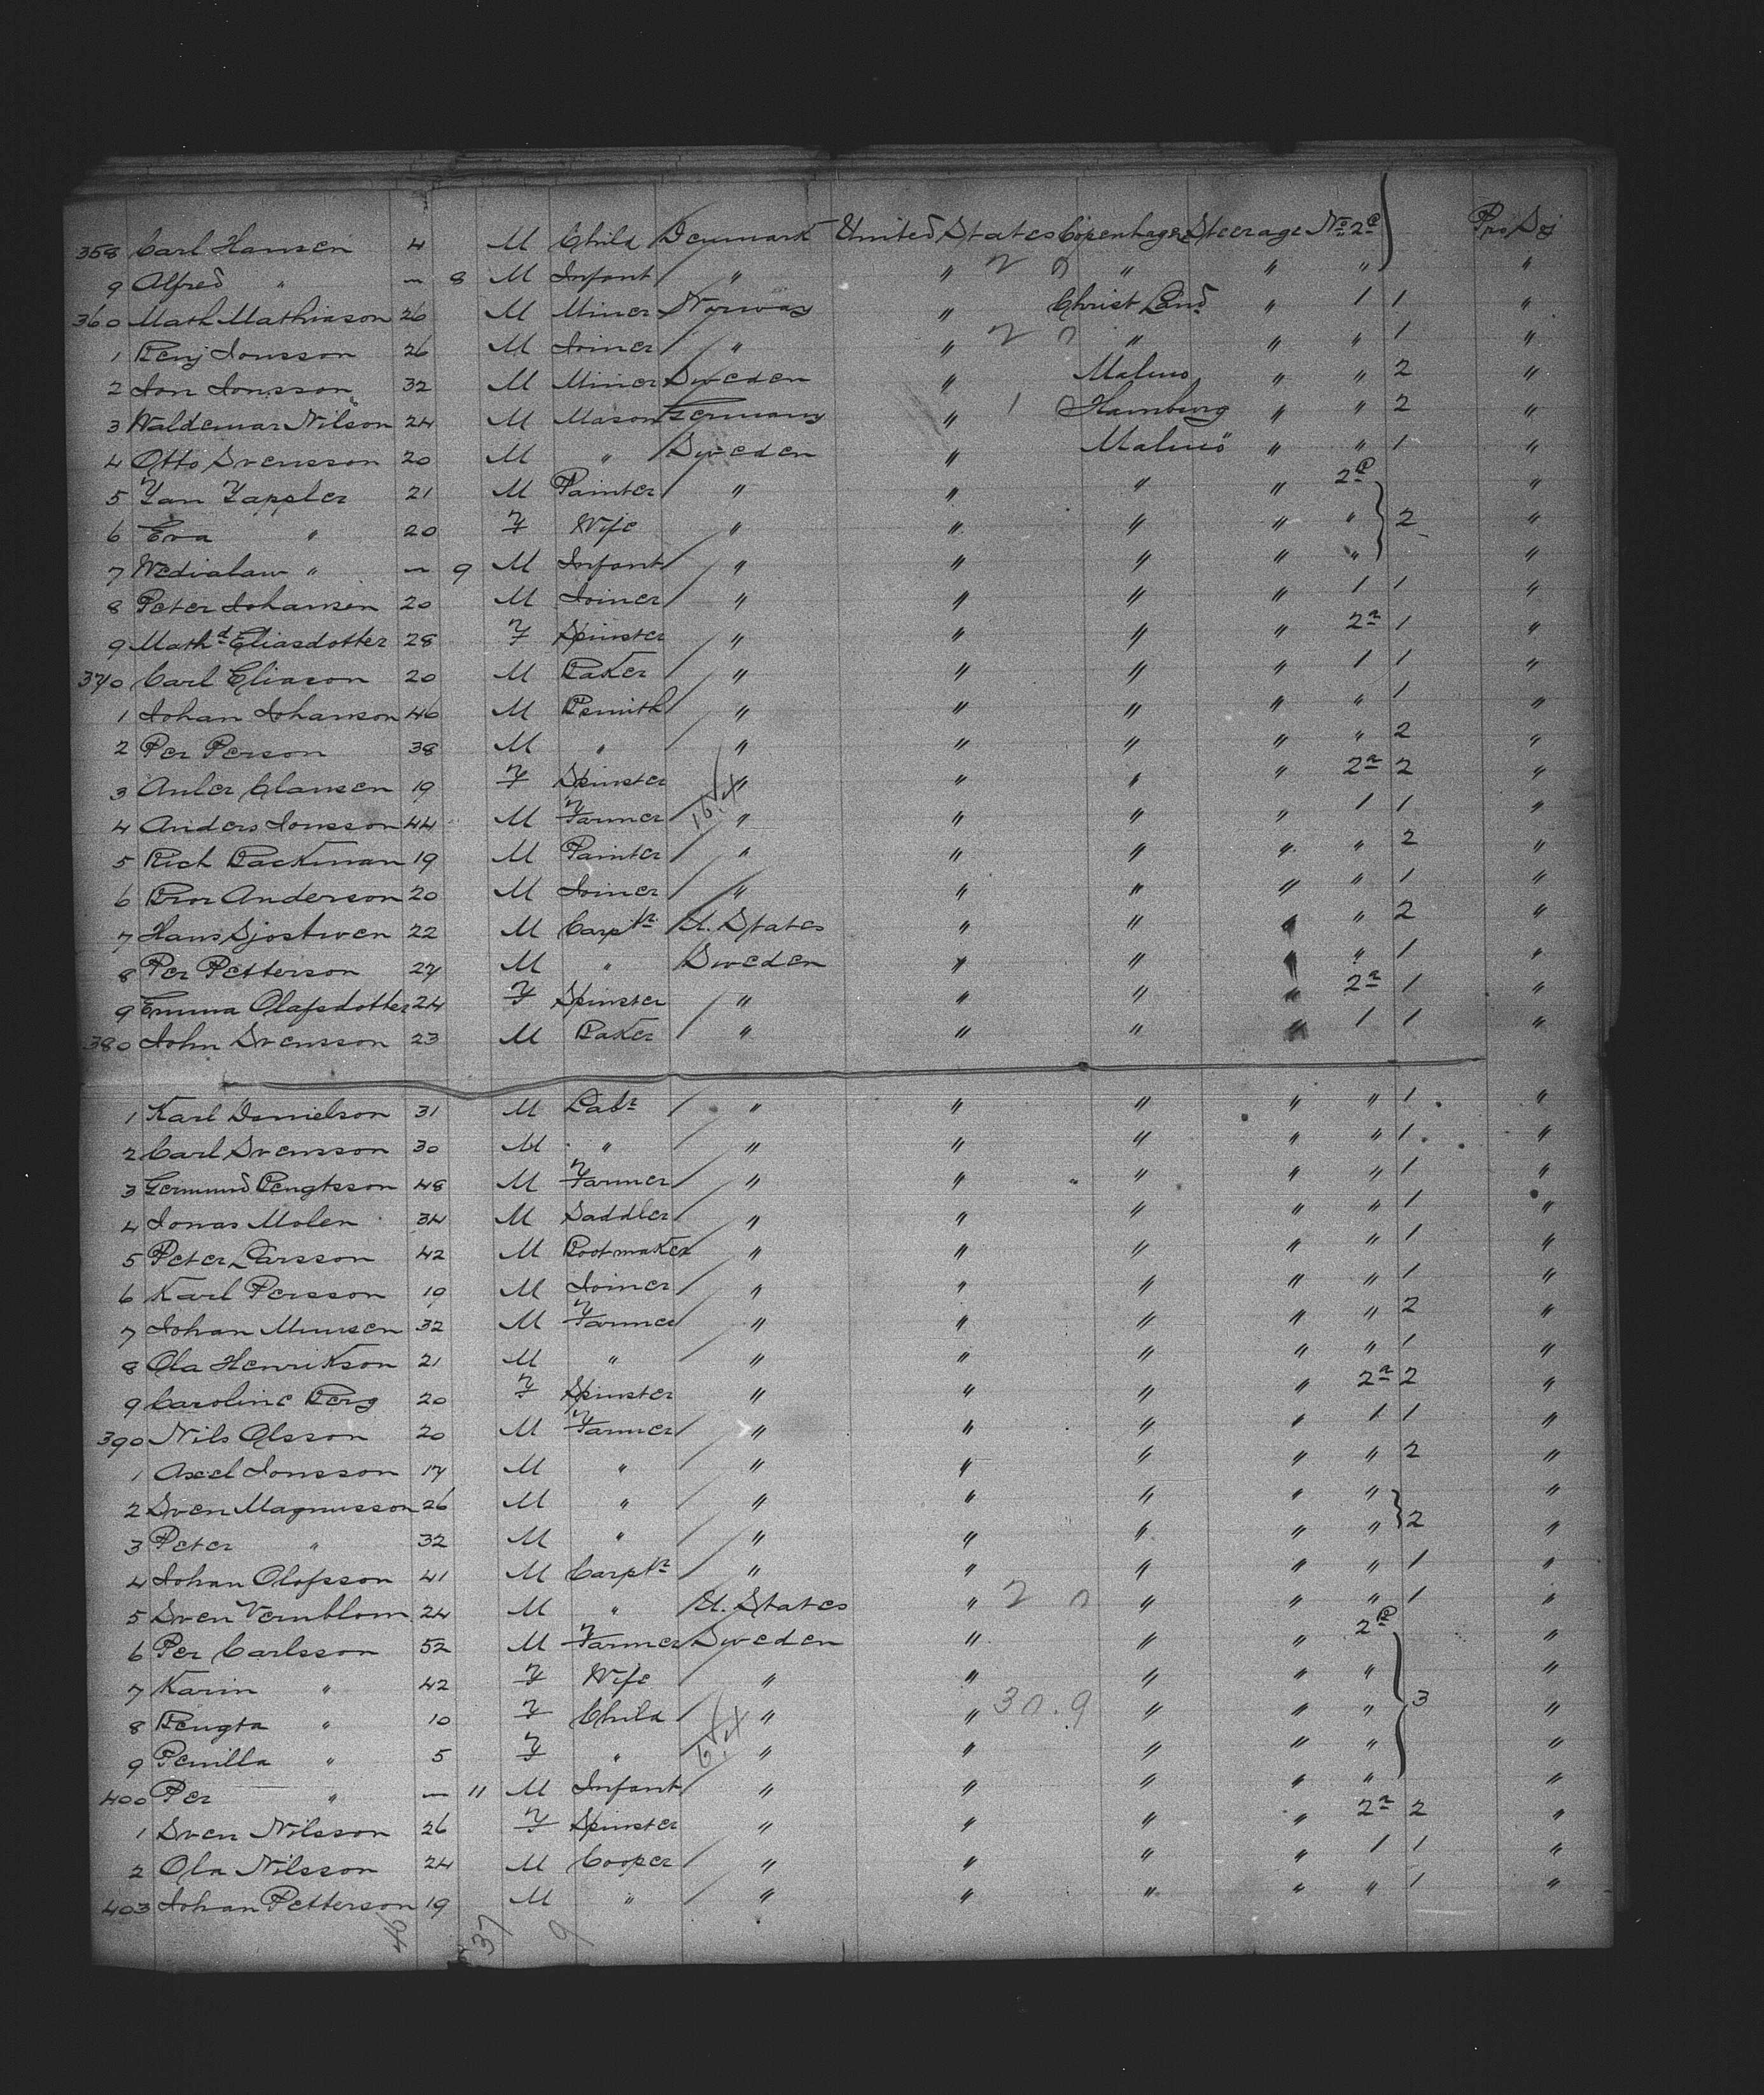 358 Carl Hansen 4 M Child Denmark United States Copenhagen Steerage No 2c Pro Soj
9 Alfred " — 8 M Infant " " 2 " " " "
360 Math Mathiason 26 M Miner Norway " Christ Land " 1 1 "
1 Benj Jonsson 26 M Joiner " " 2 " " " 1 "
2 Jon Jonsson 32 M Miner Sweden " Malmo " " 2 "
3 Waldemar Nilson 24 M Mason Germany " 1 Hamburg " " 2 "
4 Otto Svensson 20 M " Sweden " Malmö " " 1 "
5 Yan Yappler 21 M Painter " " " " 2c "
6 Eva " 20 F Wife " " " " " 2 "
7 Wedialaw " — 9 M Infant " " " " " "
8 Peter Johansen 20 M Joiner " " " " 1 1 "
9 Mathd Eliasdotter 28 F Spinster " " " " 2a 1 "
370 Carl Eliason 20 M Baker " " " " 1 1 "
1 Johan Johanson 46 M Bsmith " " " " " 1 "
2 Per Person 38 M " " " " " " 2 "
3 Anler Clausen 19 F Spinster " " " " 2a 2 "
4 Anders Jonsson 44 M Farmer " " " " 1 1 "
5 Rich Backman 19 M Painter " " " " " 2 "
6 Bror Anderson 20 M Joiner " " " " " 1 "
7 Hans Sjostwen 22 M Carptr U. States " " " " 2 "
8 Per Petterson 27 M " Sweden " " " " 1 "
9 Emma Olafsdotter 24 F Spinster " " " " 2a 1 "
380 John Svensson 23 M Baker " " " " 1 1 "
1 Karl Danielson 31 M Labr " " " " " 1 "
2 Carl Svensson 30 M " " " " " " 1 "
3 Germund Bengtsson 48 M Farmer " " " " " 1 "
4 Jonas Molen 34 M Saddler " " " " " 1 "
5 Peter Larsson 42 M Bootmaker " " " " " 1 "
6 Karl Persson 19 M Joiner " " " " " 1 "
7 Johan Munsen 32 M Farmer " " " " " 2 "
8 Ola Henrikson 21 M " " " " " " 1 "
9 Caroline Berg 20 F Spinster " " " " 2a 2 "
390 Nils Olsson 20 M Farmer " " " " 1 1 "
1 Axel Jonsson 17 M " " " " " " 2 "
2 Sven Magnusson 26 M " " " " " " "
3 Peter " 32 M " " " " " " 2 "
4 Johan Olofsson 41 M Carptr " " " " " 1 "
5 Sven Vernblom 24 M " U. States " 2 " " " 1 "
6 Per Carlsson 52 M Farmer Sweden " " " 2c "
7 Karin " 42 F Wife " " " " " "
8 Bengta " 10 F Child " " 30.9 " " " 3 "
9 Penilla " 5 F " " " " " " "
400 Per " — 11 M Infant " " " " " "
1 Sven Nilsson 26 F Spinster " " " " 2a 2 "
2 Ola Nilsson 24 M Cooper " " " " 1 1 "
403 Johan Petterson 19 M " " " " " " 1 "
46 37 9